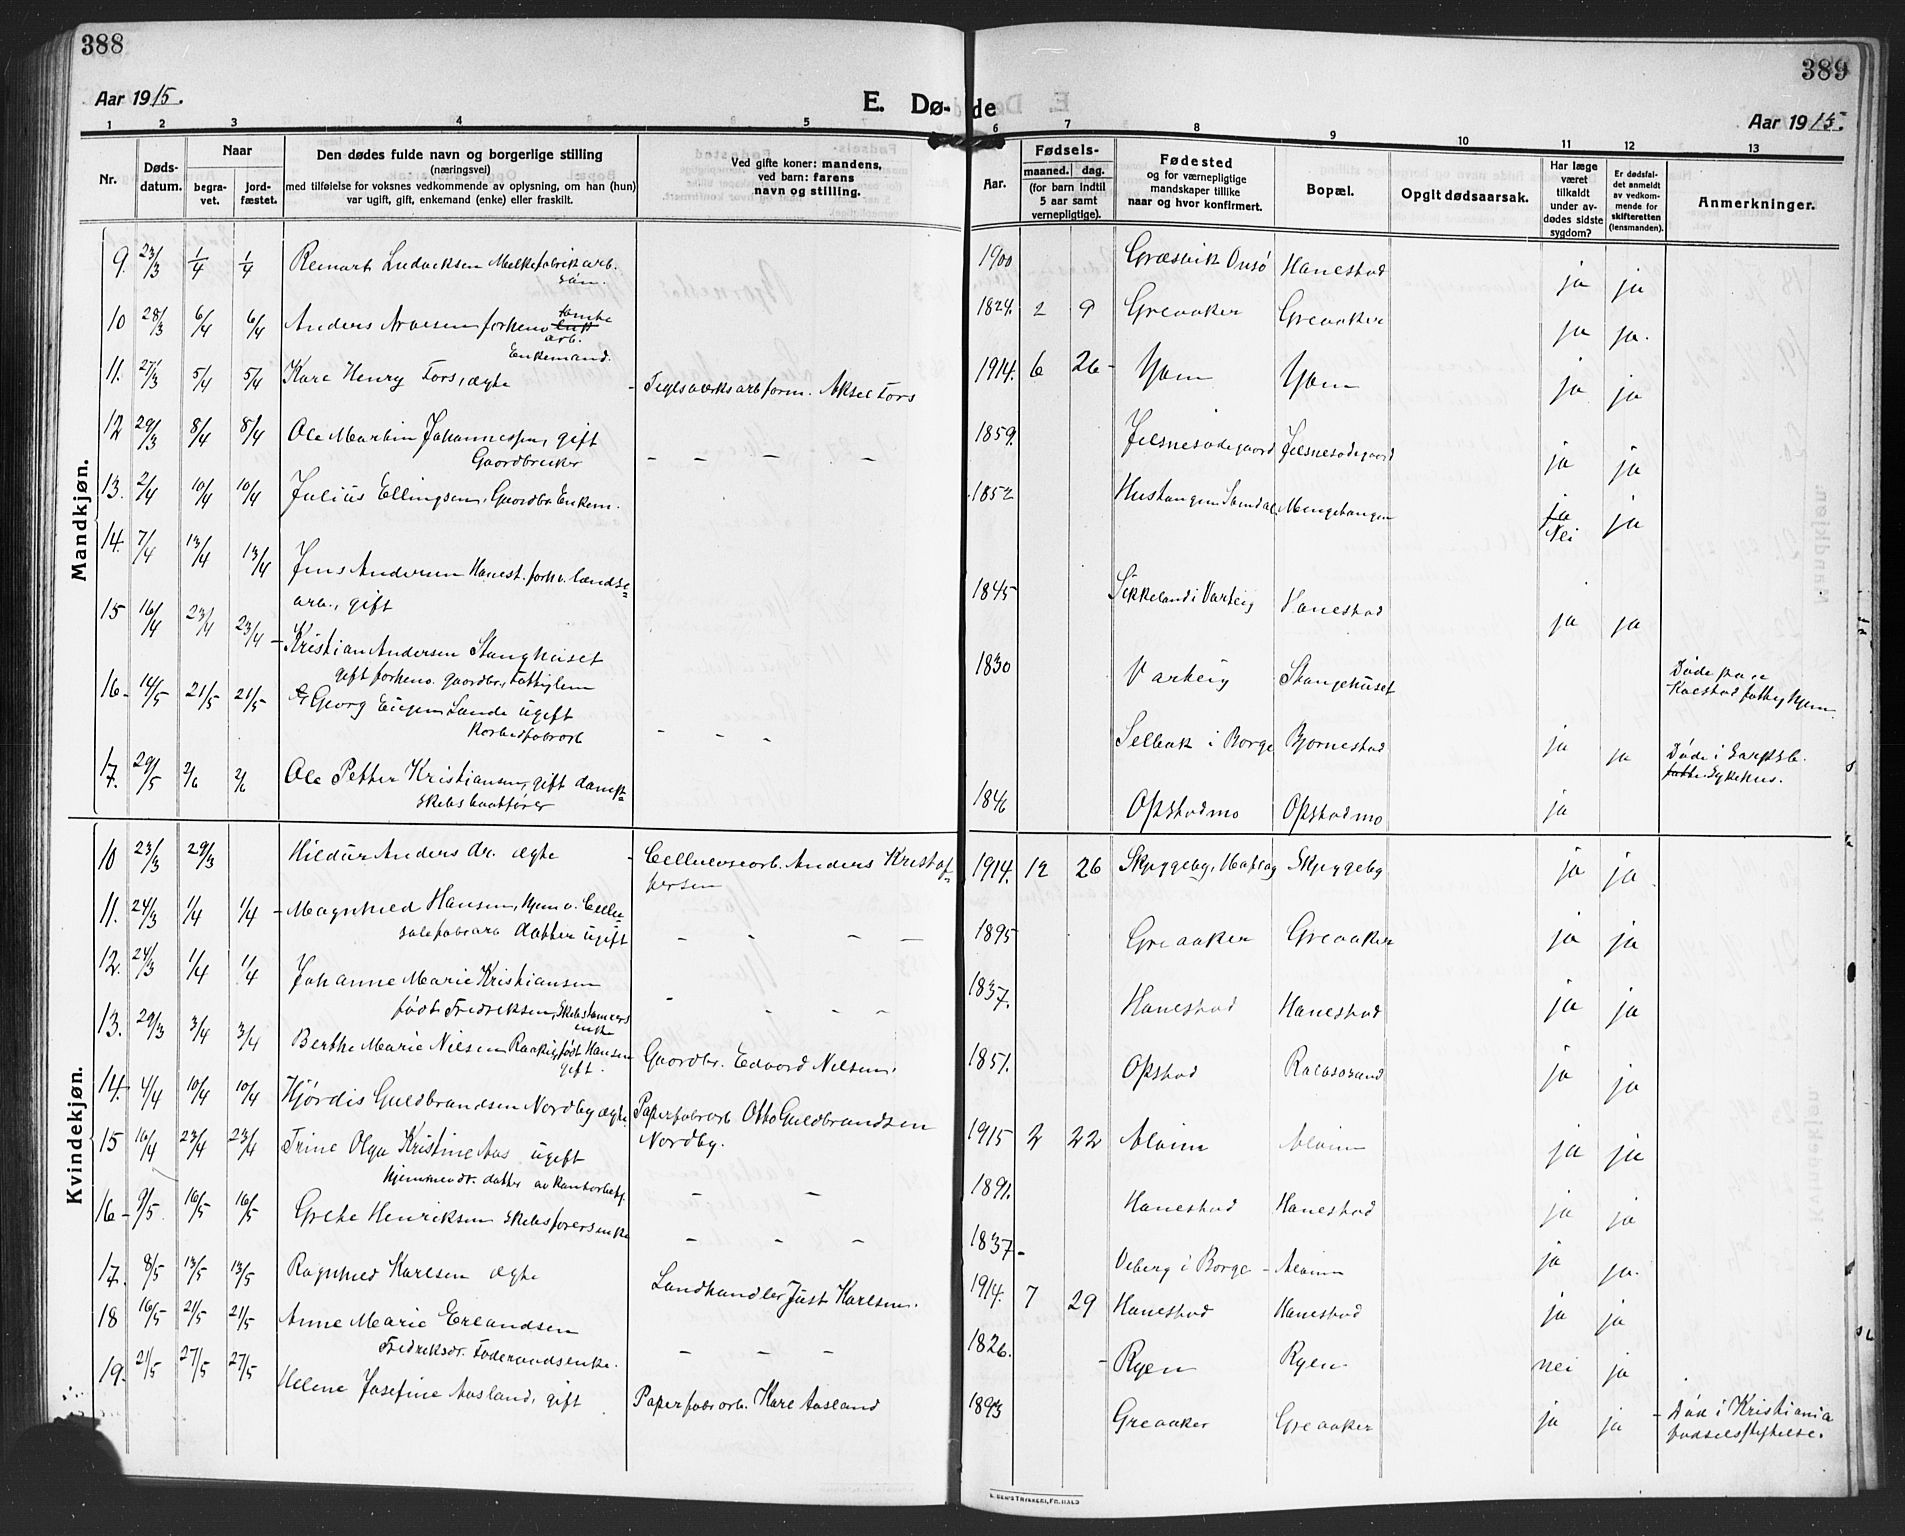 388
389
Aar 1915.
E. Dø-
de
Aar 1915.
1 2 3 4 5
6 7 8 9 10 11 12 13
Nr.
Døds-
datum.
Naar
begra-
vet.
jord-
fæstet.
Den dødes fulde navn og borgerlige stilling
(næringsvei)
med tilføielse for voksnes vedkommende av oplysning, om han (hun)
var ugift, gift, enkemand (enke) eller fraskilt.
Ved gifte koner: mandens,
ved barn: farens
navn og stilling.
Aar.
Fødsels-
maaned. dag.
(for barn indtil
5 aar samt
vernepligtige).
Fødested
og for værnepligtige
mandskaper tillike
naar og hvor konfirmert.
Bopæl.
Opgit dødsaarsak.
Har læge
været
tilkaldt
under av-
dødes sidste
sygdom?
Er dødsfal-
det anmeldt
av vedkom-
mende for
skifteretten
(lensmanden).
Anmerkninger.
Mandkjøn.
9. 23/3 1/4 1/4 Ludviksen Melkefabrikarb. søn. 1900 Græsvik Onsø Hanestad ja ja
10 28/3 6/4 6/4 Anders Arvesen forhenv. tomte arb. Enkemand. 1824. 2 9 Greaaker Greaaker ja ja.
11. 27/3 5/4 5/4 Kare Henry Fors, ægte - Teglsverksarbform. Aksel Fors 1914. 6 26 - ja ja
12 29/3 8/4 8/4 Ole Martin Johannessen, gift Gaardbruker - - - - 1859. Jelsnesødegaard Jelsnesødegaard ja ja
13. 2/4 10/4 10/4 Julius Ellingsen, Gaardbr. Enkem. 1852 Mengehaugen ja Nei ja
14. 7/4 13/4 13/4 Jens Andersen Hanest. forhv. lændse- arb., gift 1845 Sikkeland i Varteig Hanestad ja ja
15 16/4 23/4 23/4 - Kristian Andersen Stanghuset gift forhenv. Gaardbr., fattiglem 1830 Varteig Stangehuset Døde paa Kalestad fattighjem.
16- 14/5 21/5 21/5 Georg Eugen Lande ugift Karbidfabrarb - - - Selbak i Borge Bjørnestad ja ja Døde i Sarpsb. Sykehus.
17. 29/5 2/6 2/6 Ole Petter Kristiansen, gift damp- skibsbaatfører 1846 Opstadmo Opstadmo ja
Kvindekjøn.
10 23/3 29/3 Hildur Anders dr. ægte - Celluloseorb. Anders Kristof- fersen 1914. 12 26 Skjeggeby Skjeggeby ja ja
11. 24/3 1/4 1/4 - Magnhild Hansen, hjem v. Cellu- losefabrarb datter ugift - - - - 1895 Greaaker Greaaker ja ja
12. 24/3 1/4 1/4 Johanne Marie Kristiansen født Fredriksen, Skibstømmers enke - - - - 1837. Hanestad Hanestad ja ja
13. 29/3 3/4 3/4 Berthe Marie Nilsen født Hansen gift. Gaardbr. Edvard Nilsen. 1851. Opstad ja ja
14. 4/4 10/4 10/4 Hjørdis Guldbrandsen Nordby ægte Papirfabrarb Otto Guldbrandsen Nordby. 1915 2 22 Alvim Alvim ja ja
15 16/4 23/4 23/4 Trine Olga Kristine Aas ugift hjemmevær. datter - - 1891. Hanestad Hanestad ja ja
16- 9/5 16/5 16/5 Grethe Henriksen skibsførersenke - - - 1837- Veberg i Borge - Alvim ja ja.
17. 8/5 13/5 13/5 Ragnhild Karlsen ægte Landhandler Just Karlsen. 1914. 7 29 Hanestad Hanestad ja ja
18 16/5 21/5 21/5 Anne Marie Erlandsen Fredriksdr. Føderaadsenke. - - - 1826. - Ryen Ryen nei ja
19. 21/5 27/5 27/5 Helene Josefine Aasland, gift Papirfabrarb. Karl Aasland 1893 Greaaker Greaaker ja ja - Død i Kristiania fødselsstiftelse.